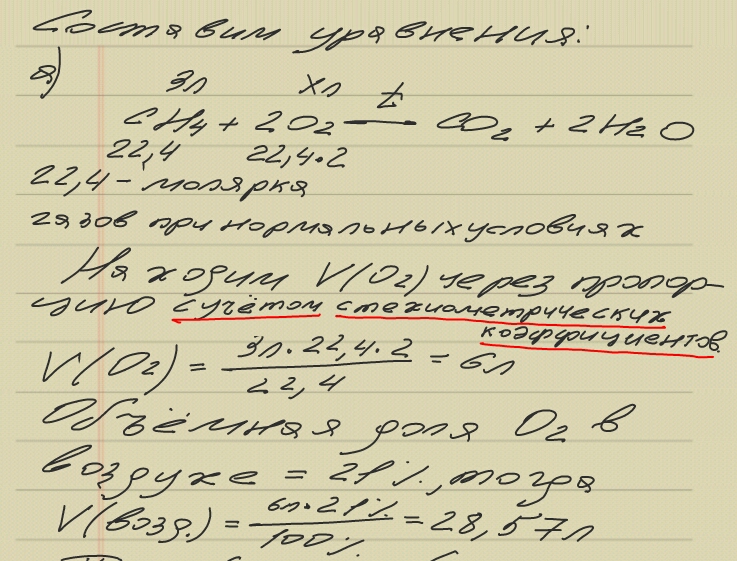 Составим уравнения:
а)
3л xл
CH4 + 2O2 —t— CO2 + 2H2O
22,4 22,4·2
22,4 – молярка
газов при нормальных условиях
Находим V(O2) через пропор-
цию с учётом стехиометрических
коэффициентов
V(O2) = 3л·22,4·2 / 22,4 = 6л
Объёмная доля O2 в
воздухе = 21%, тогда
V(возд.) = 6л·21% / 100% = 28,57л